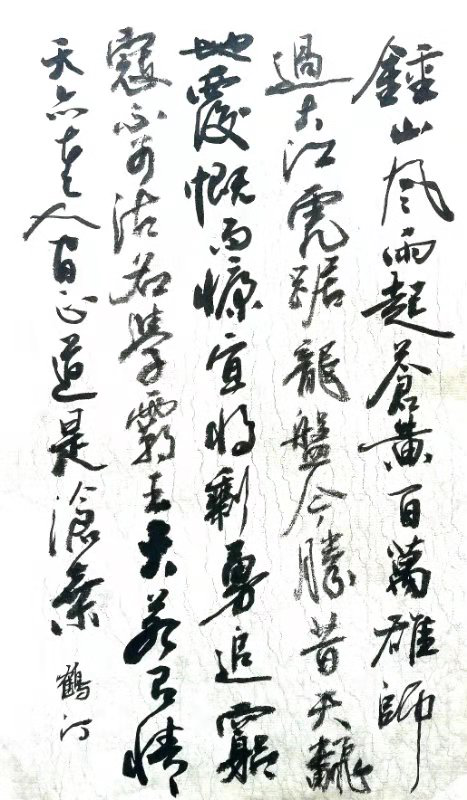 鍾山風雨起蒼黃百萬雄師
過大江虎踞龍盤今勝昔天翻
地覆慨而慷宜將剩勇追窮
寇不可沽名學霸王天若有情
天亦老人間正道是滄桑 鶴汀